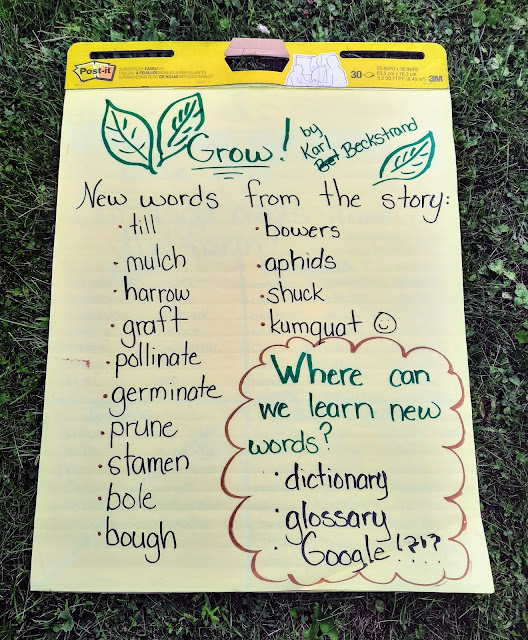 Post-it
30
3M
Grow! by Karl Beckstrand
New words from the story:
• till
• mulch
• harrow
• graft
• pollinate
• germinate
• prune
• stamen
• bole
• bough
• bowers
• aphids
• shuck
• kumquat ☺
Where can
we learn new
words?
• dictionary
• glossary
• Google!?!?...